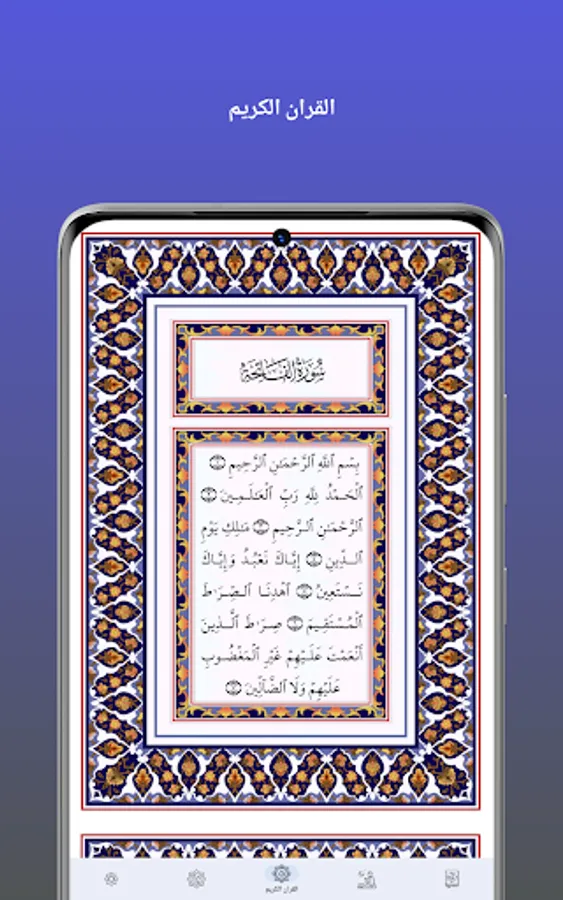 القران الكريم
سُورَةُ الفَاتِحَةِ
بِسْمِ ٱللَّهِ ٱلرَّحْمَـٰنِ ٱلرَّحِيمِ ۝
ٱلْحَمْدُ لِلَّهِ رَبِّ ٱلْعَـٰلَمِينَ ۝
ٱلرَّحْمَـٰنِ ٱلرَّحِيمِ ۝ مَـٰلِكِ يَوْمِ
ٱلدِّينِ ۝ إِيَّاكَ نَعْبُدُ وَإِيَّاكَ
نَسْتَعِينُ ۝ ٱهْدِنَا ٱلصِّرَٰطَ
ٱلْمُسْتَقِيمَ ۝ صِرَٰطَ ٱلَّذِينَ
أَنْعَمْتَ عَلَيْهِمْ غَيْرِ ٱلْمَغْضُوبِ
عَلَيْهِمْ وَلَا ٱلضَّآلِّينَ ۝
القران الكريم